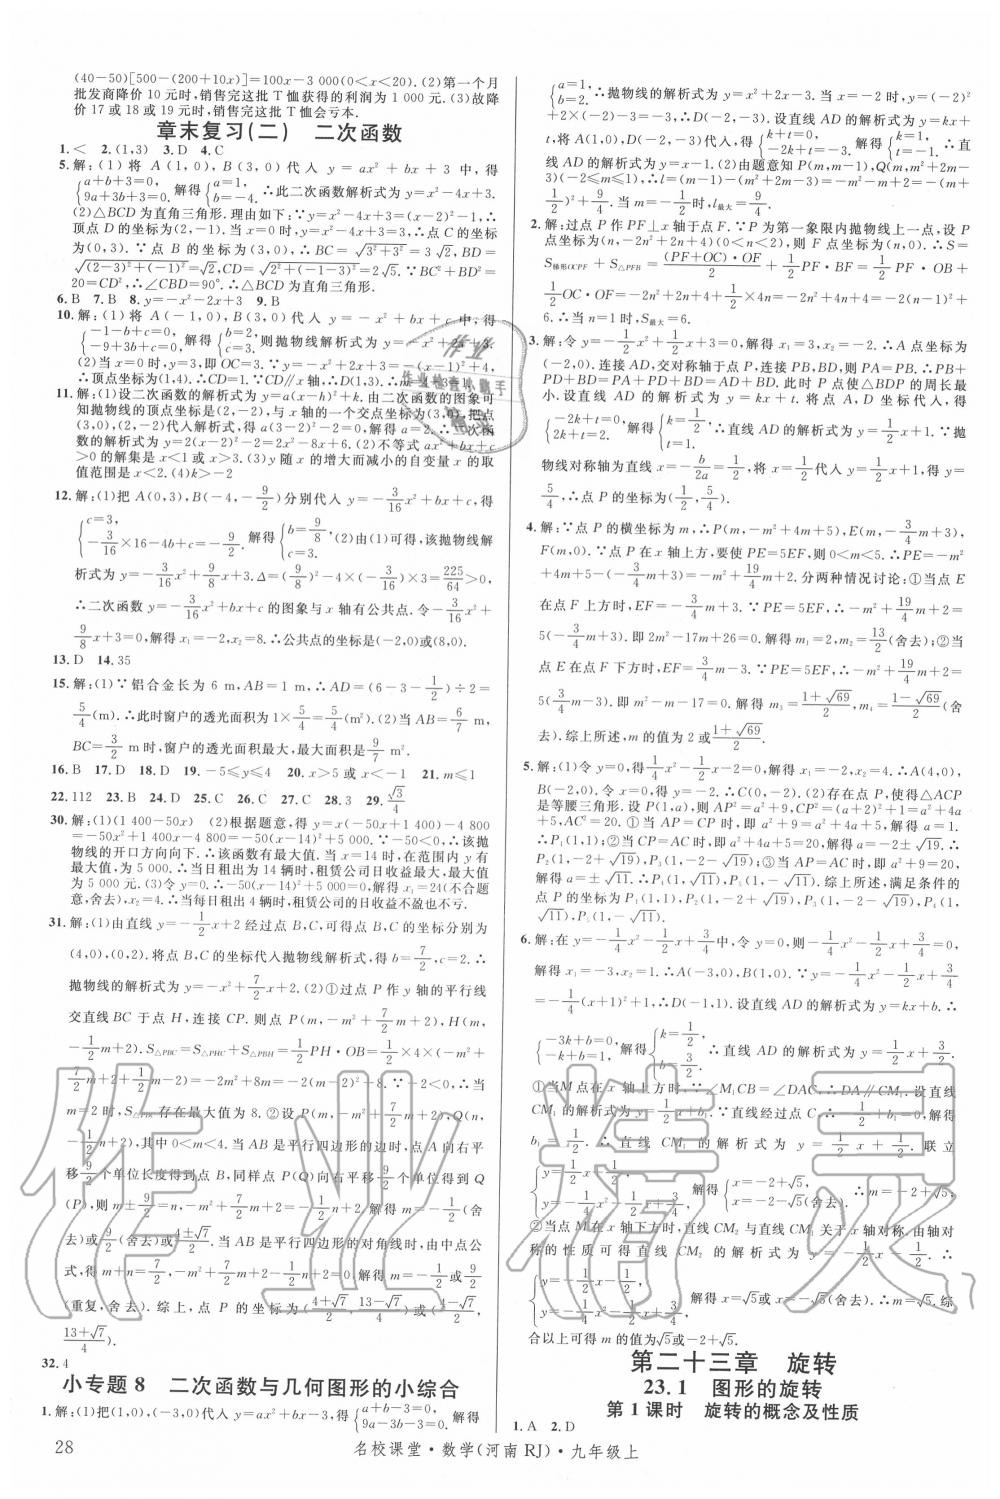 (40-50)[500-(200+10x)]=100x-3 000(0<x<20). (2)第一个月
批发商降价 10 元时,销售完这批 T 恤获得的利润为 1 000 元. (3)故降
价 17 或 18 或 19 元时,销售完这批 T 恤会亏本.
章末复习(二) 二次函数
1. < 2. (1,3) 3. D 4. C
5. 解:(1) 将 A(1,0),B(3,0)代入 y=ax²+bx+3 中,得
{a+b+3=0, 9a+3b+3=0, 解得 {a=1, b=-4. ∴此二次函数解析式为 y=x²-4x+3.
(2)△BCD 为直角三角形. 理由如下:∵y=x²-4x+3=(x-2)²-1,∴
顶点 D 的坐标为(2,-1). 当 x=0 时,y=x²-4x+3=3,∴点 C 的坐标
为(0,3). ∵点 B 的坐标为(3,0),∴BC=√(3²+3²)=3√2,BD=
√((2-3)²+(-1)²)=√2,CD=√(2²+(-1-3)²)=2√5. ∵BC²+BD²=
20=CD²,∴∠CBD=90°. ∴△BCD 为直角三角形.
6. B 7. B 8. y=-x²-2x+3 9. B
10. 解:(1) 将 A(-1,0),B(3,0)代入 y=-x²+bx+c 中,得
{-1-b+c=0, -9+3b+c=0, 解得 {b=2, c=3. 则抛物线解析式为 y=-x²+2x+3.
(2)当 x=0 时,y=3,即 OC=3. ∵y=-x²+2x+3=-(x-1)²+4,
∴顶点坐标为(1,4). ∵CD∥x 轴,
11. 解:(1)设二次函数的解析式为 y=a(x-h)²+k. 由二次函数的图象可
知抛物线的顶点坐标是(2,-2),与 x 轴的一个交点坐标为(3,0),把点
(3,0),(2,-2)代入解析式,得 a(3-2)²-2=0,解得 a=2. ∴二次函
数的解析式为 y=2(x-2)²-2=2x²-8x+6. (2)不等式 ax²+bx+c
>0 的解集是 x<1 或 x>3. (3)y 随 x 的增大而减小的自变量 x 的取
值范围是 x<2. (4)k>-2
12. 解:(1)把 A(0,3),B(-4,-9/2)分别代入 y=-3/16x²+bx+c,得
{c=3, -3/16×16-4b+c=-9/2. 解得 {b=9/8, c=3. (2)由(1)可得,该抛物线解
析式为 y=-3/16x²+9/8x+3. Δ=(9/8)²-4×(-3/16)×3=225/64>0,
∴二次函数 y=-3/16x²+bx+c 的图象与 x 轴有公共点. 令-3/16x²+
9/8x+3=0,解得 x₁=-2,x₂=8. ∴公共点的坐标是(-2,0)或(8,0).
13. D 14. 35
15. 解:(1)∵铝合金长为 6 m,AB=1 m,∴AD=(6-3-1/2)÷2=
5/4(m). ∴此时窗户的透光面积为 1×5/4=5/4(m²). (2)当 AB=6/7 m,
BC=3/2 m 时,窗户的透光面积最大,最大面积是 9/7 m².
16. B 17. D 18. D 19. -5≤y≤4 20. x>5 或 x<-1 21. m≤1
22. 112 23. B 24. D 25. C 26. C 27. C 28. 3 29. √3/4
30. 解:(1)(1 400-50x) (2)根据题意,得 y=x(-50x+1 400)-4 800
=-50x²+1 400x-4 800=-50(x-14)²+5 000. ∵-50<0,∴该抛
物线的开口方向向下. ∴该函数有最大值. 当 x=14 时,在范围内 y 有
最大值,为 5 000. ∴当日租出 14 辆时,租赁公司的日收益最大,最大
值为 5 000 元. (3)令 y=0. ∴-50(x-14)²+5 000=0,解得 x₁=24(不合题
意,舍去),x₂=4. ∴当每日租出 4 辆时,租赁公司的日收益不盈也不亏.
31. 解:(1)由直线 y=-1/2x+2 经过点 B,C,可得点 B,C 的坐标分别为
(4,0),(0,2). 将点 B,C 的坐标代入抛物线解析式,得 b=7/2,c=2. ∴
抛物线的解析式为 y=-x²+7/2x+2. (2)①过点 P 作 y 轴的平行线
交直线 BC 于点 H,连接 CP. 则点 P(m,-m²+7/2m+2),H(m,
-1/2m+2). S△PBC=S△PHC+S△PBH=1/2PH·OB=1/2×4×(-m²+
7/2m+2+1/2m-2)=-2m²+8m=-2(m-2)²+8. ∵-2<0,∴当
m=2 时,S△PBC 存在最大值为 8. ②设点 P(m,-m²+7/2m+2),Q(n,
-1/2n+2),点 B(4,0),C(0,2). 当 AB 是平行四边形的边时,点 A 向右平
移 9/2 个单位长度得到点 B,同样点 P(Q)向右平移 9/2 个单位得到 Q
(P),则 m±9/2=n,-m²+7/2m+2=-1/2n+2. 解得 m=-1/2(舍
去)或 9/2(舍去)或 ;当 AB 是平行四边形的对角线时,由中点公
式,得 m+n=7/2,
(重复,舍去). 综上,点 P 的坐标为((4+√7)/2,(13-√7)/4)或((4-√7)/2,
(13+√7)/4).
32. 4
小专题 8 二次函数与几何图形的小综合
1. 解:(1)把(1,0),(-3,0)代入 y=ax²+bx-3,得 {a+b-3=0, 9a-3b-3=0. 解得
28
{a=1, b=2. ∴抛物线的解析式为 y=x²+2x-3. 当 x=-2 时,y=(-2)²
+2×(-2)-3,解得 y=-3. ∴D(-2,-3). 设直线 AD 的解析式为 y=kx
+t,将 A(1,0),D(-2,-3)代入,得 {k+t=0, -2k+t=-3. 解得 {k=1, t=-1. ∴直
线 AD 的解析式为 y=x-1. (2)由题意知 P(m,m-1),Q(m,m²+2m-
3)(-2≤m≤1),∴l=(m-1)-(m²+2m-3)=-m²-m+2=-(m+
1/2)²+9/4. ∴当 m=-1/2 时,l最大=9/4.
2. 解:过点 P 作 PF⊥x 轴于点 F. ∵P 为第一象限内抛物线上一点,设 P
点坐标为(n,-2n²+2n+4)(0<n<2),则 F 点坐标为(n,0). ∴S=
S梯形OCPF+S△PFB=(PF+OC)·OF/2+1/2PF·BF=1/2PF·OB+
1/2OC·OF=-2n²+2n+4+1/2×4n=-2n²+4n+4=-2(n-1)²+
6. ∴当 n=1 时,S最大=6.
3. 解:令 y=-1/2x²+1/2x+3=0,解得 x₁=3,x₂=-2. ∴A 点坐标为
(-2,0). 连接 AD,交对称轴于点 P,连接 PB,BD,则 PA=PB. ∴PB+
PD+BD=PA+PD+BD=AD+BD. 此时 P 点使△BDP 的周长最
小. 设直线 AD 的解析式为 y=kx+t. 将点 A,D 坐标代入,得
{-2k+t=0, 2k+t=2. 解得 {k=1/2, t=1. ∴直线 AD 的解析式为 y=1/2x+1. ∵抛
物线对称轴为直线 x=-b/2a=1/2,将 x=1/2代入 y=1/2x+1,得 y=
5/4,∴点 P 的坐标为(1/2,5/4).
4. 解:∵点 P 的横坐标为 m,∴P(m,-m²+4m+5),E(m,-3/4m+3),
F(m,0). ∵点 P 在 x 轴上方,要使 PE=5EF,则 0<m<5. ∴PE=-m²
+4m+5-(-3/4m+3)=-m²+19/4m+2. 分两种情况讨论:①当点 E
在点 F 上方时,EF=-3/4m+3. ∵PE=5EF,∴-m²+19/4m+2=
5(-3/4m+3). 即 2m²-17m+26=0. 解得 m₁=2,m₂=13/2(舍去);②当
点 E 在点 F 下方时,EF=3/4m-3. ∵PE=5EF,∴-m²+19/4m+2=
5(3/4m-3). 即 m²-m-17=0. 解得 m₃=(1+√69)/2,m₄=(1-√69)/2(舍
去). 综上所述,m 的值为 2 或(1+√69)/2.
5. 解:(1)令 y=0,得 1/4x²-1/2x-2=0,解得 x₁=-2,x₂=4. ∴A(4,0),
B(-2,0). 令 x=0,得 y=-2. ∴C(0,-2). (2)存在点 P,使得△ACP
是等腰三角形. 设 P(1,a),则 AP²=a²+9,CP²=(a+2)²+1=a²+4a
+5,AC²=20. ①当 AP=CP 时,即 a²+9=a²+4a+5,解得 a=1.
∴P₁(1,1);②当 CP=AC 时,即 a²+4a+5=20,解得 a=-2±√19. ∴
P₂(1,-2+√19),P₃(1,-2-√19);③当 AP=AC 时,即 a²+9=20,
解得 a=±√11. ∴P₄(1,√11),P₅(1,-√11). 综上所述,满足条件的
点 P 的坐标为 P₁(1,1),P₂(1,-2+√19),P₃(1,-2-√19),P₄(1,
√11),P₅(1,-√11).
6. 解:在 y=-1/4x²-1/2x+3/4中,令 y=0,则-1/4x²-1/2x+3/4=0,
解得 x₁=-3,x₂=1. ∴A(-3,0),B(1,0). ∵y=-1/4x²-1/2x+3/4
=-1/4(x+1)²+1,∴D(-1,1). 设直线 AD 的解析式为 y=kx+b. ∴
{-3k+b=0, -k+b=1. 解得 {k=1/2, b=3/2. ∴直线 AD 的解析式为 y=1/2x+3/2.
①当M点在 x 轴上方时,∵∠M₁CB=∠DAC,∴DA∥CM₁. 设直线
CM₁ 的解析式为 y=1/2x+b₁. ∵直线经过点 C,
b₁=1/2. ∴直线 CM₁ 的解析式为 y=1/2x+1/2. 联立
解得 {x=-2+√5, {x=-2-√5(舍去). ∴m=-2+√5;
②当点 M 在 x 轴下方时,直线 CM₂ 与直线 CM₁ 关于 x 轴对称,由轴对
称的性质可得直线 CM₂ 的解析式为 y=-1/2x-1/2. ∴
解得 {x=√5, {x=-√5(舍去). ∴m=√5. 综
合以上可得 m 的值为√5或-2+√5.
第二十三章 旋转
23.1 图形的旋转
第 1 课时 旋转的概念及性质
1. A 2. D
名校课堂·数学(河南 RJ)·九年级上
作业精灵